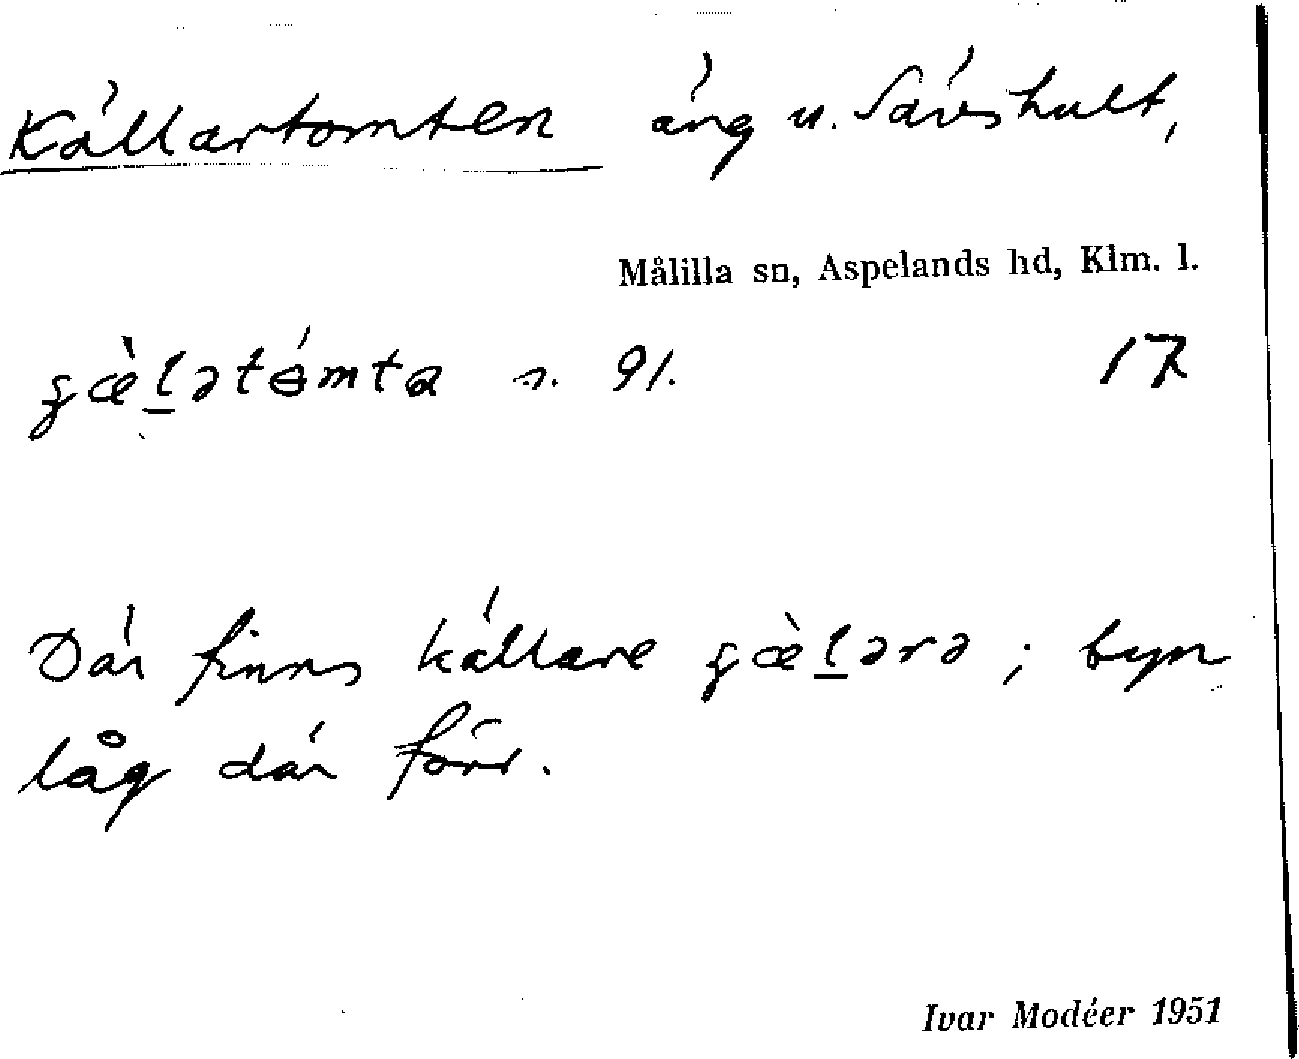 Källartomten äng u. Sävshult,
Målilla sn, Aspelands hd, Klm. l.
n. 91. 17
Där finns källare ; byn
låg där förr.
Ivar Modéer 1951